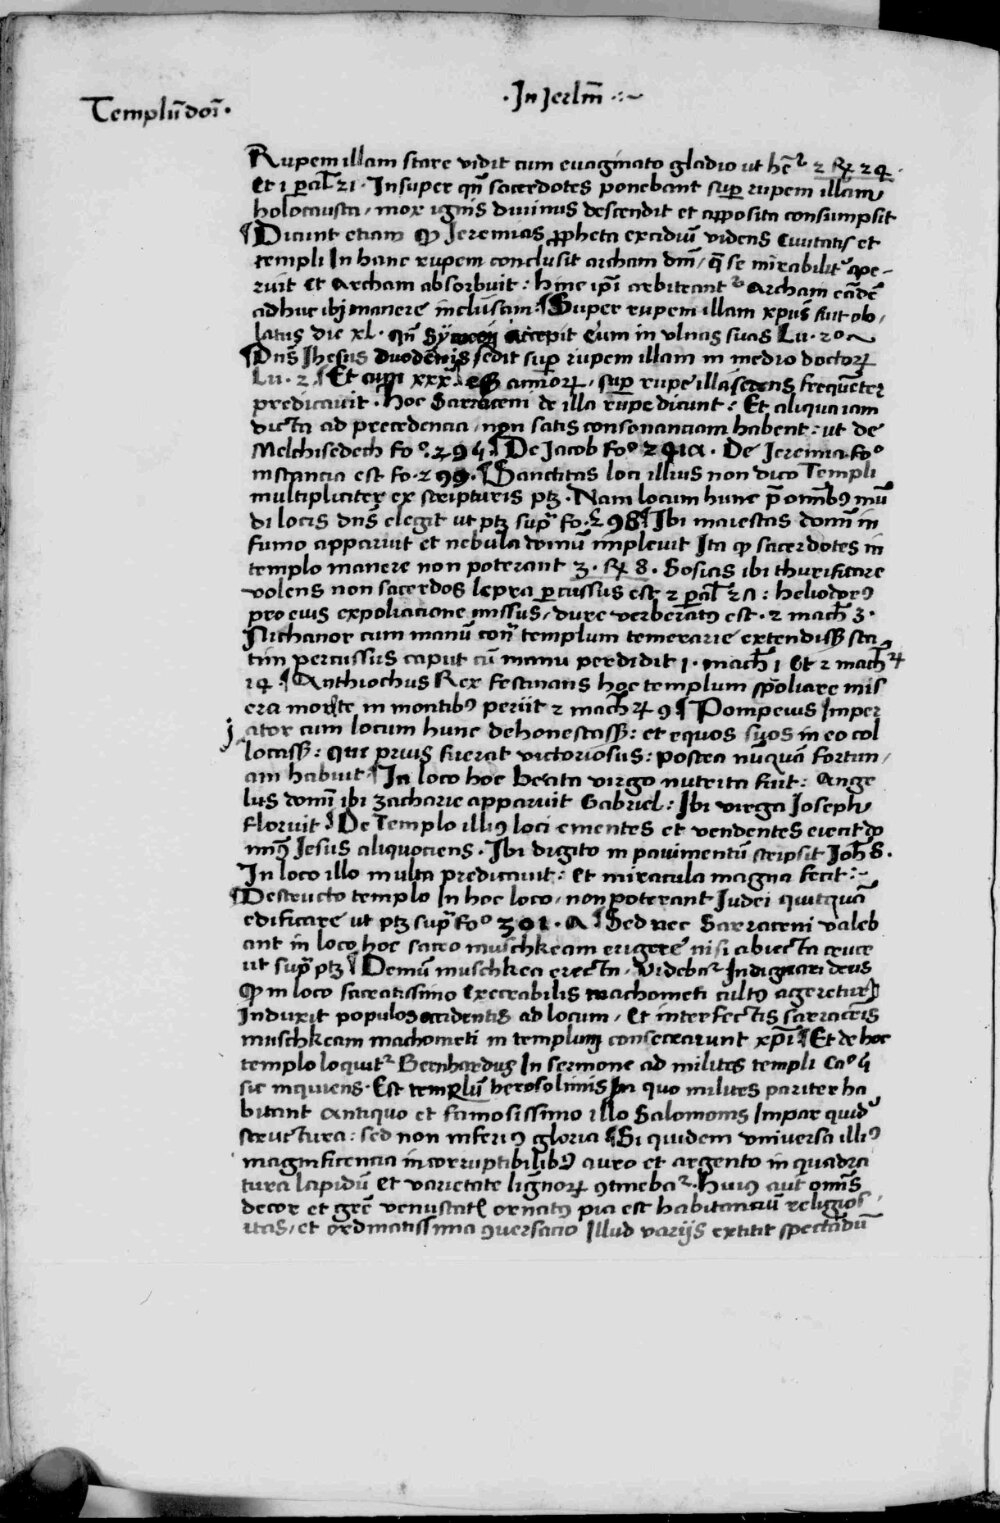 Templu͞ doi͞ ·
· In Jerlm͞ ·:~
Rupem illam stare vidit cum euaginato gladio ut he͞tͬ 2 Rꝝ 24 ·
Et 1 p̲al͞ 21 · Insuper qn͞ sacerdotes ponebant sup̲ rupem illam
holocausta / mox ignis diuinus descendit et apposita consumpsit
¶ Dicunt etiam ꝙ Jeremias ꝓpheta excidiu͞ videns Ciuitatis et
templi In hanc rupem conclusit archam dni͞ / q̄ se mirabilitͬ ape-
ruit et Archam absorbuit : hinc ip͞i arbitrantͬ Archam ea͞de͞
adhuc ibj manere inclusam · ¶ Super rupem illam xpus͞ fuit ob /
latus die xl · qn͞ Symeon accepit Eum in vlnas suas Lu · 2º ~
¶ Dns͞ Jhesus duodennis sedit sup̲ rupem illam in medio doctoꝝ
Lu · 2 ¶ Et cum xxx esset annoꝝ · sup̲ rupe͞ illa͞ sedens freque͞ter
predicauit · Hoc Sarraceni de illa rupe dicunt : Et aliqua iam
dicta ad precedencia / non satis consonanciam habent : ut de
Melchisedech fo º · 295 ¶ De Jacob foº 291a · De Jeremia · foº
instancia est fo · 299 · ¶ Sanctitas loci illius non dico Templi
multipliciter ex scripturis ptꝫ · Nam locum hunc p̄ omnibꝰ mu͞
di locis dns͞ elegit ut ptꝫ supͣ fo · 298 ¶ Ibi maiestas domi͞ in
fumo apparuit et nebula domu͞ impleuit Ita ꝙ sacerdotes in
templo manere non poterant 3 · Rꝝ 8 · Sosias ibi thurificare
volens non sacerdos lepra p̲cussus est 2 p̲al͞ 26 : heliodorꝰ
pro eius expoliacione missus / dure verberatꝰ est · 2 mach͞ 3 ·
Nichanor cum manu͞ contͬ templum temerarie extendiss͞ sta
tim percussus caput cu͞ manu perdidit 1 · mach͞ 7 Et 2 mach͞ꝝ
14 · ¶ Anthiochus Rex festinans hoc templum spoliare mis
era morte in montibꝰ periit 2 mach͞ꝝ 9 ¶ Pompeius Imper
j ator cum locum hunc dehonestass͞ : et equos suos in eo col
locass͞ : qui prius fuerat victoriosus : postea nu͞qua͞ fortun /
am habuit · ¶ In loco hoc beata virgo nutrita fuit : Ange
lus domi͞ ibi zacharie apparuit Gabriel : Ibi virga Joseph
floruit ¶ De Templo illiꝰ loci ementes et vendentes eiecit do
minꝰ Jesus aliquociens · Ibi digito in pauimentu͞ scripsit Joh͞ 8 ·
In loco illo multa predicauit : et miracula magna fecit :~
¶ Destructo templo In hoc loco / non poterant Judei quitqua͞
edificare ut ptꝫ supͣ foº 301 · a ¶ Sed nec Sarraceni valeb
ant in loco hoc sacro muschkeam erigere nisi abiecta cruce
ut supͣ ptꝫ ¶ Demu͞ muschkea erecta / Videbatͬ Indignari deus
ꝙ in loco sacratissimo execrabilis machometi cultꝰ ageretur
Induxit populos occidentis ad locum / Et interfectis sarracenis
muschkeam machometi in templum consecrarunt xp͞i ¶ Et de hoc
templo loquitͬ Bernhardus In sermone ad milites templi Caº 5
sic inquiens · Est templu͞ herosolimis In quo milites pariter ha
bitant Antiquo et famosissimo illo Salomonis Impar quid͞
structura : sed non inferiꝰ gloria ¶ Si quidem vniuersa illiꝰ
magnificencia in corruptibilibꝰ auro et argento in quadra
tura lapidu͞ et varietate lignoꝝ ꝯtinebatͬ · Huiꝰ aut͞ omnis
decor et grē venustatꝭ ornatꝰ pia est habitanciu͞ religios /
itas / et ordinatissima ꝯuersacio Illud varijs extitit spectandu͞